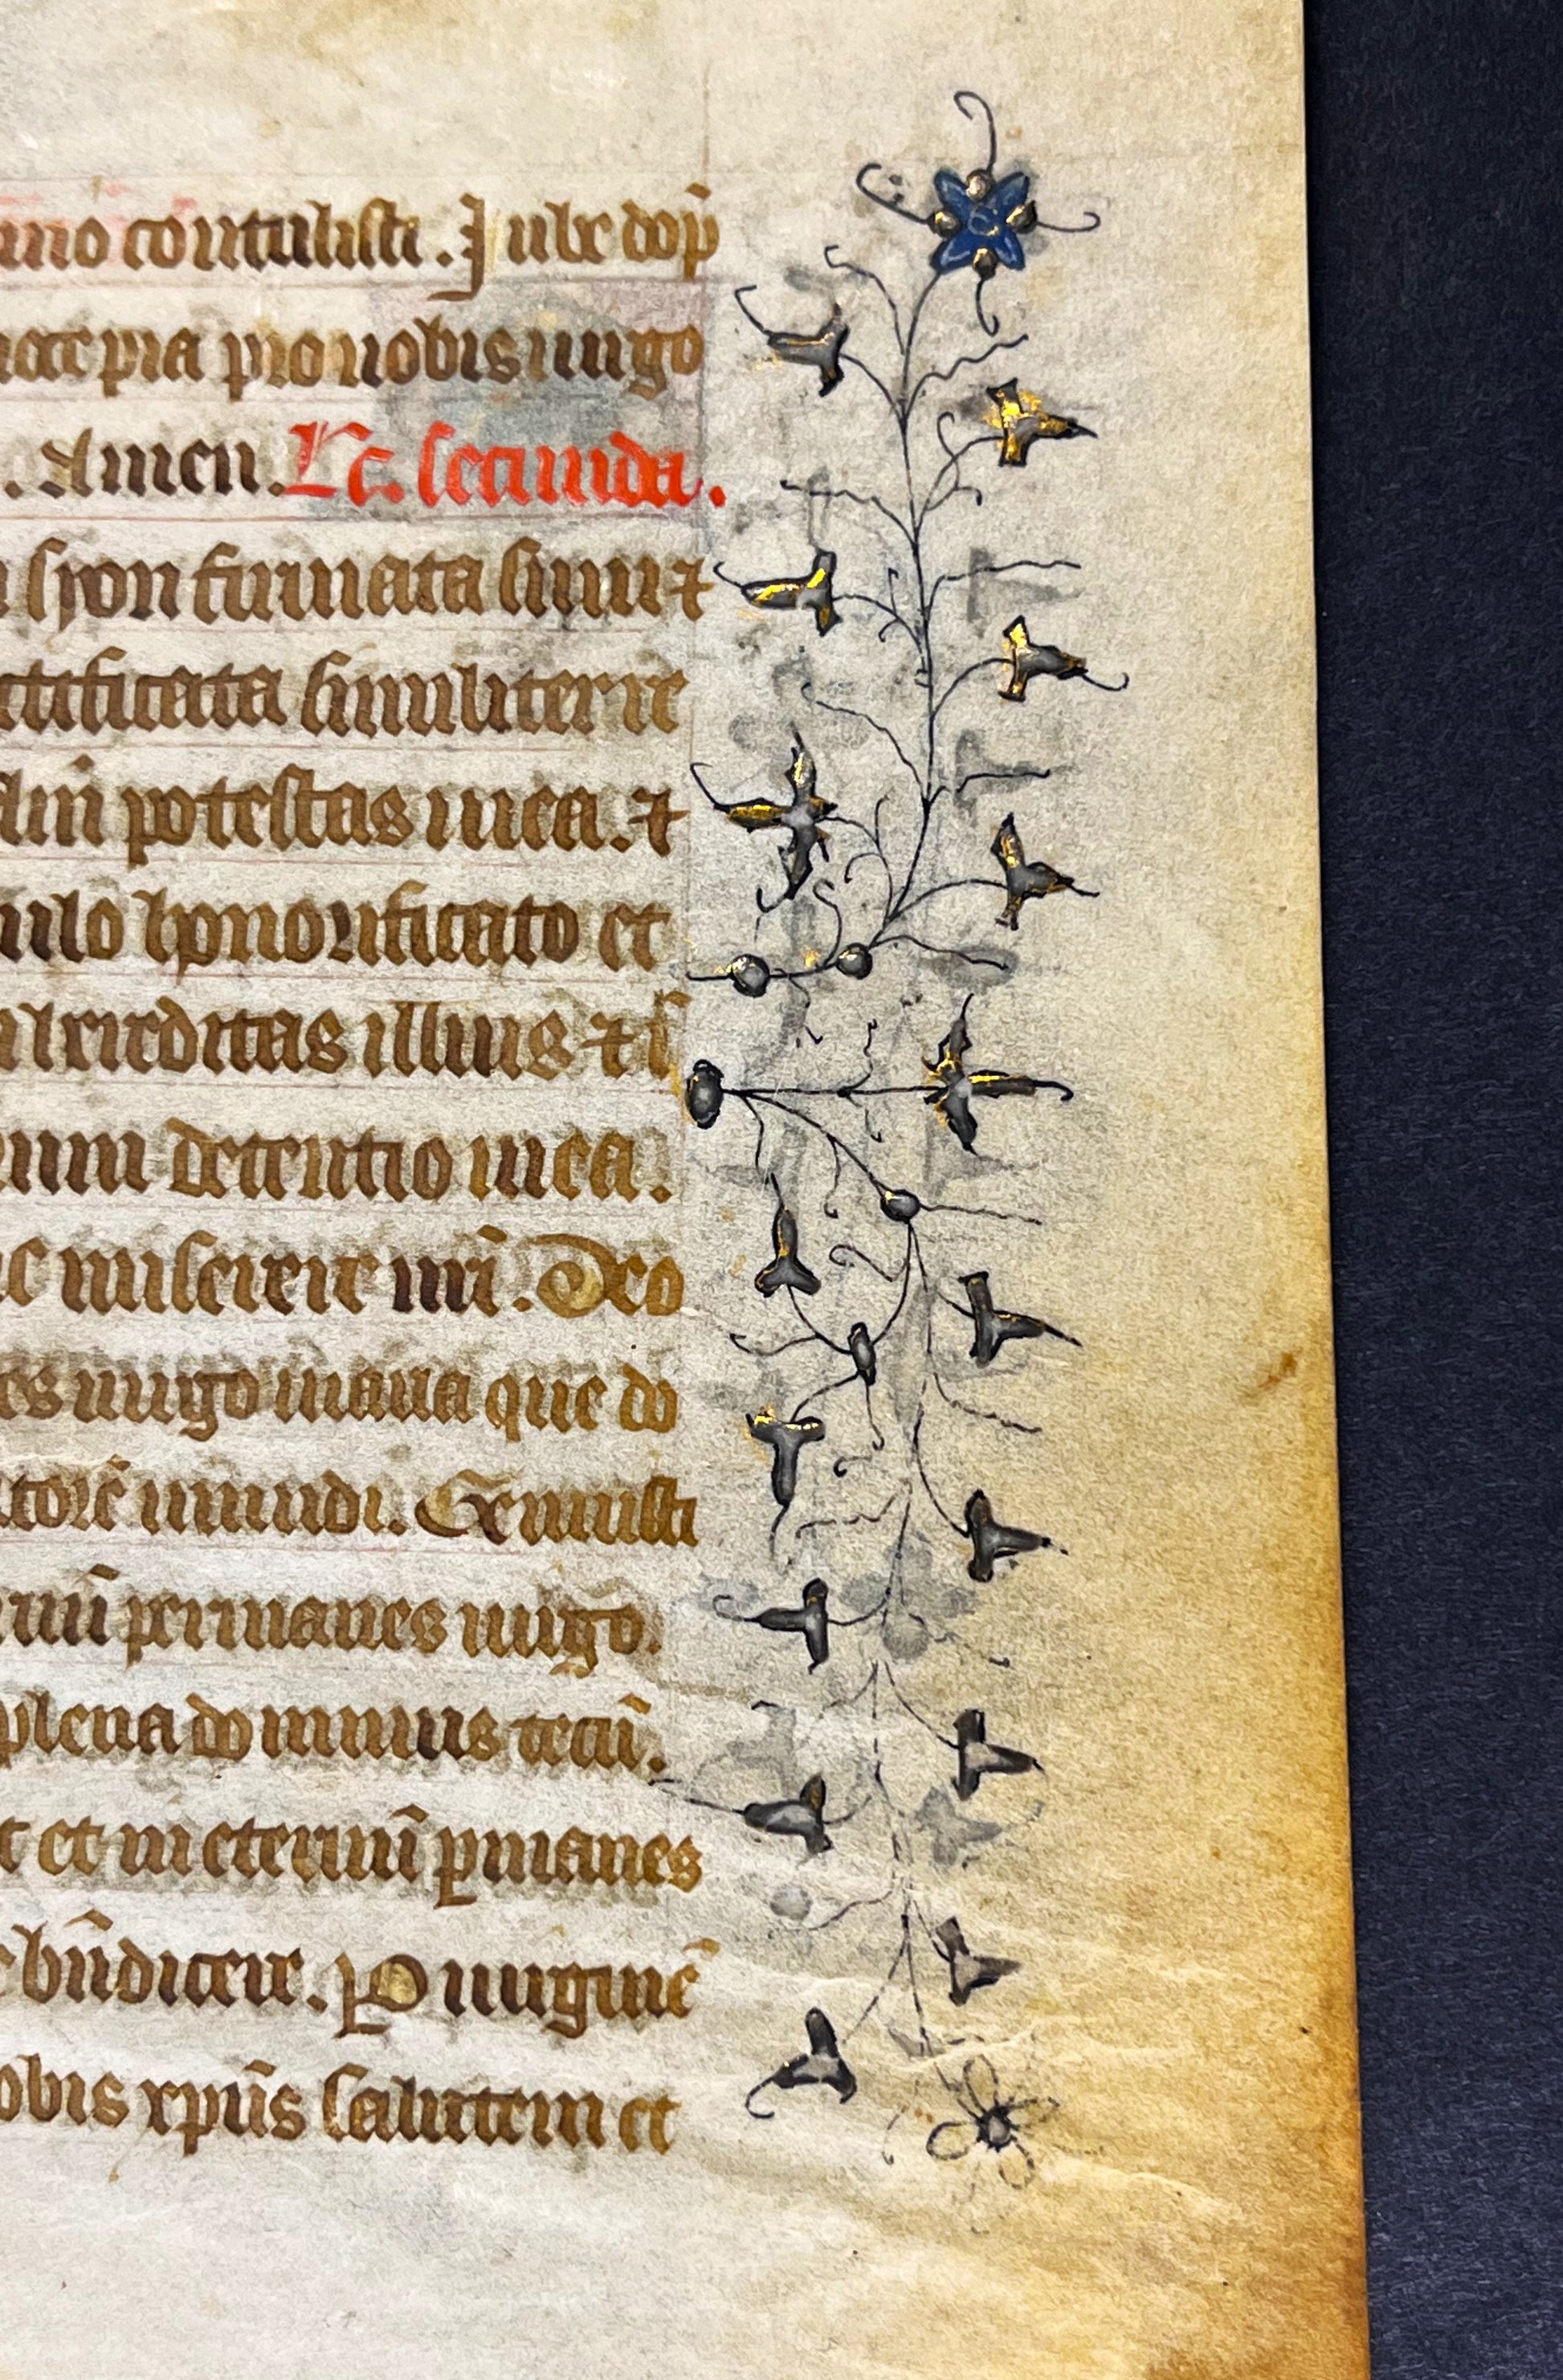 mno cōtulisti. Iube dōp
nat pia pro nobis uirgo
. Amen. Lc̄. secunda.
syon firmata sum ⁊
ctificata similiter re
lm̄ potestas mea. ⁊
pulo honorificato et
i hereditas illius ⁊ ī
rum detentio mea.
c miserere nr̄i. Deo
es uirgo maria que do
atorē mundi. Genuisti
rnū permanes uirgo.
plena dominus tecū.
t et in eternū ꝑmanes
c bn̄dicere. P uirginē
obis xpūs salutem et